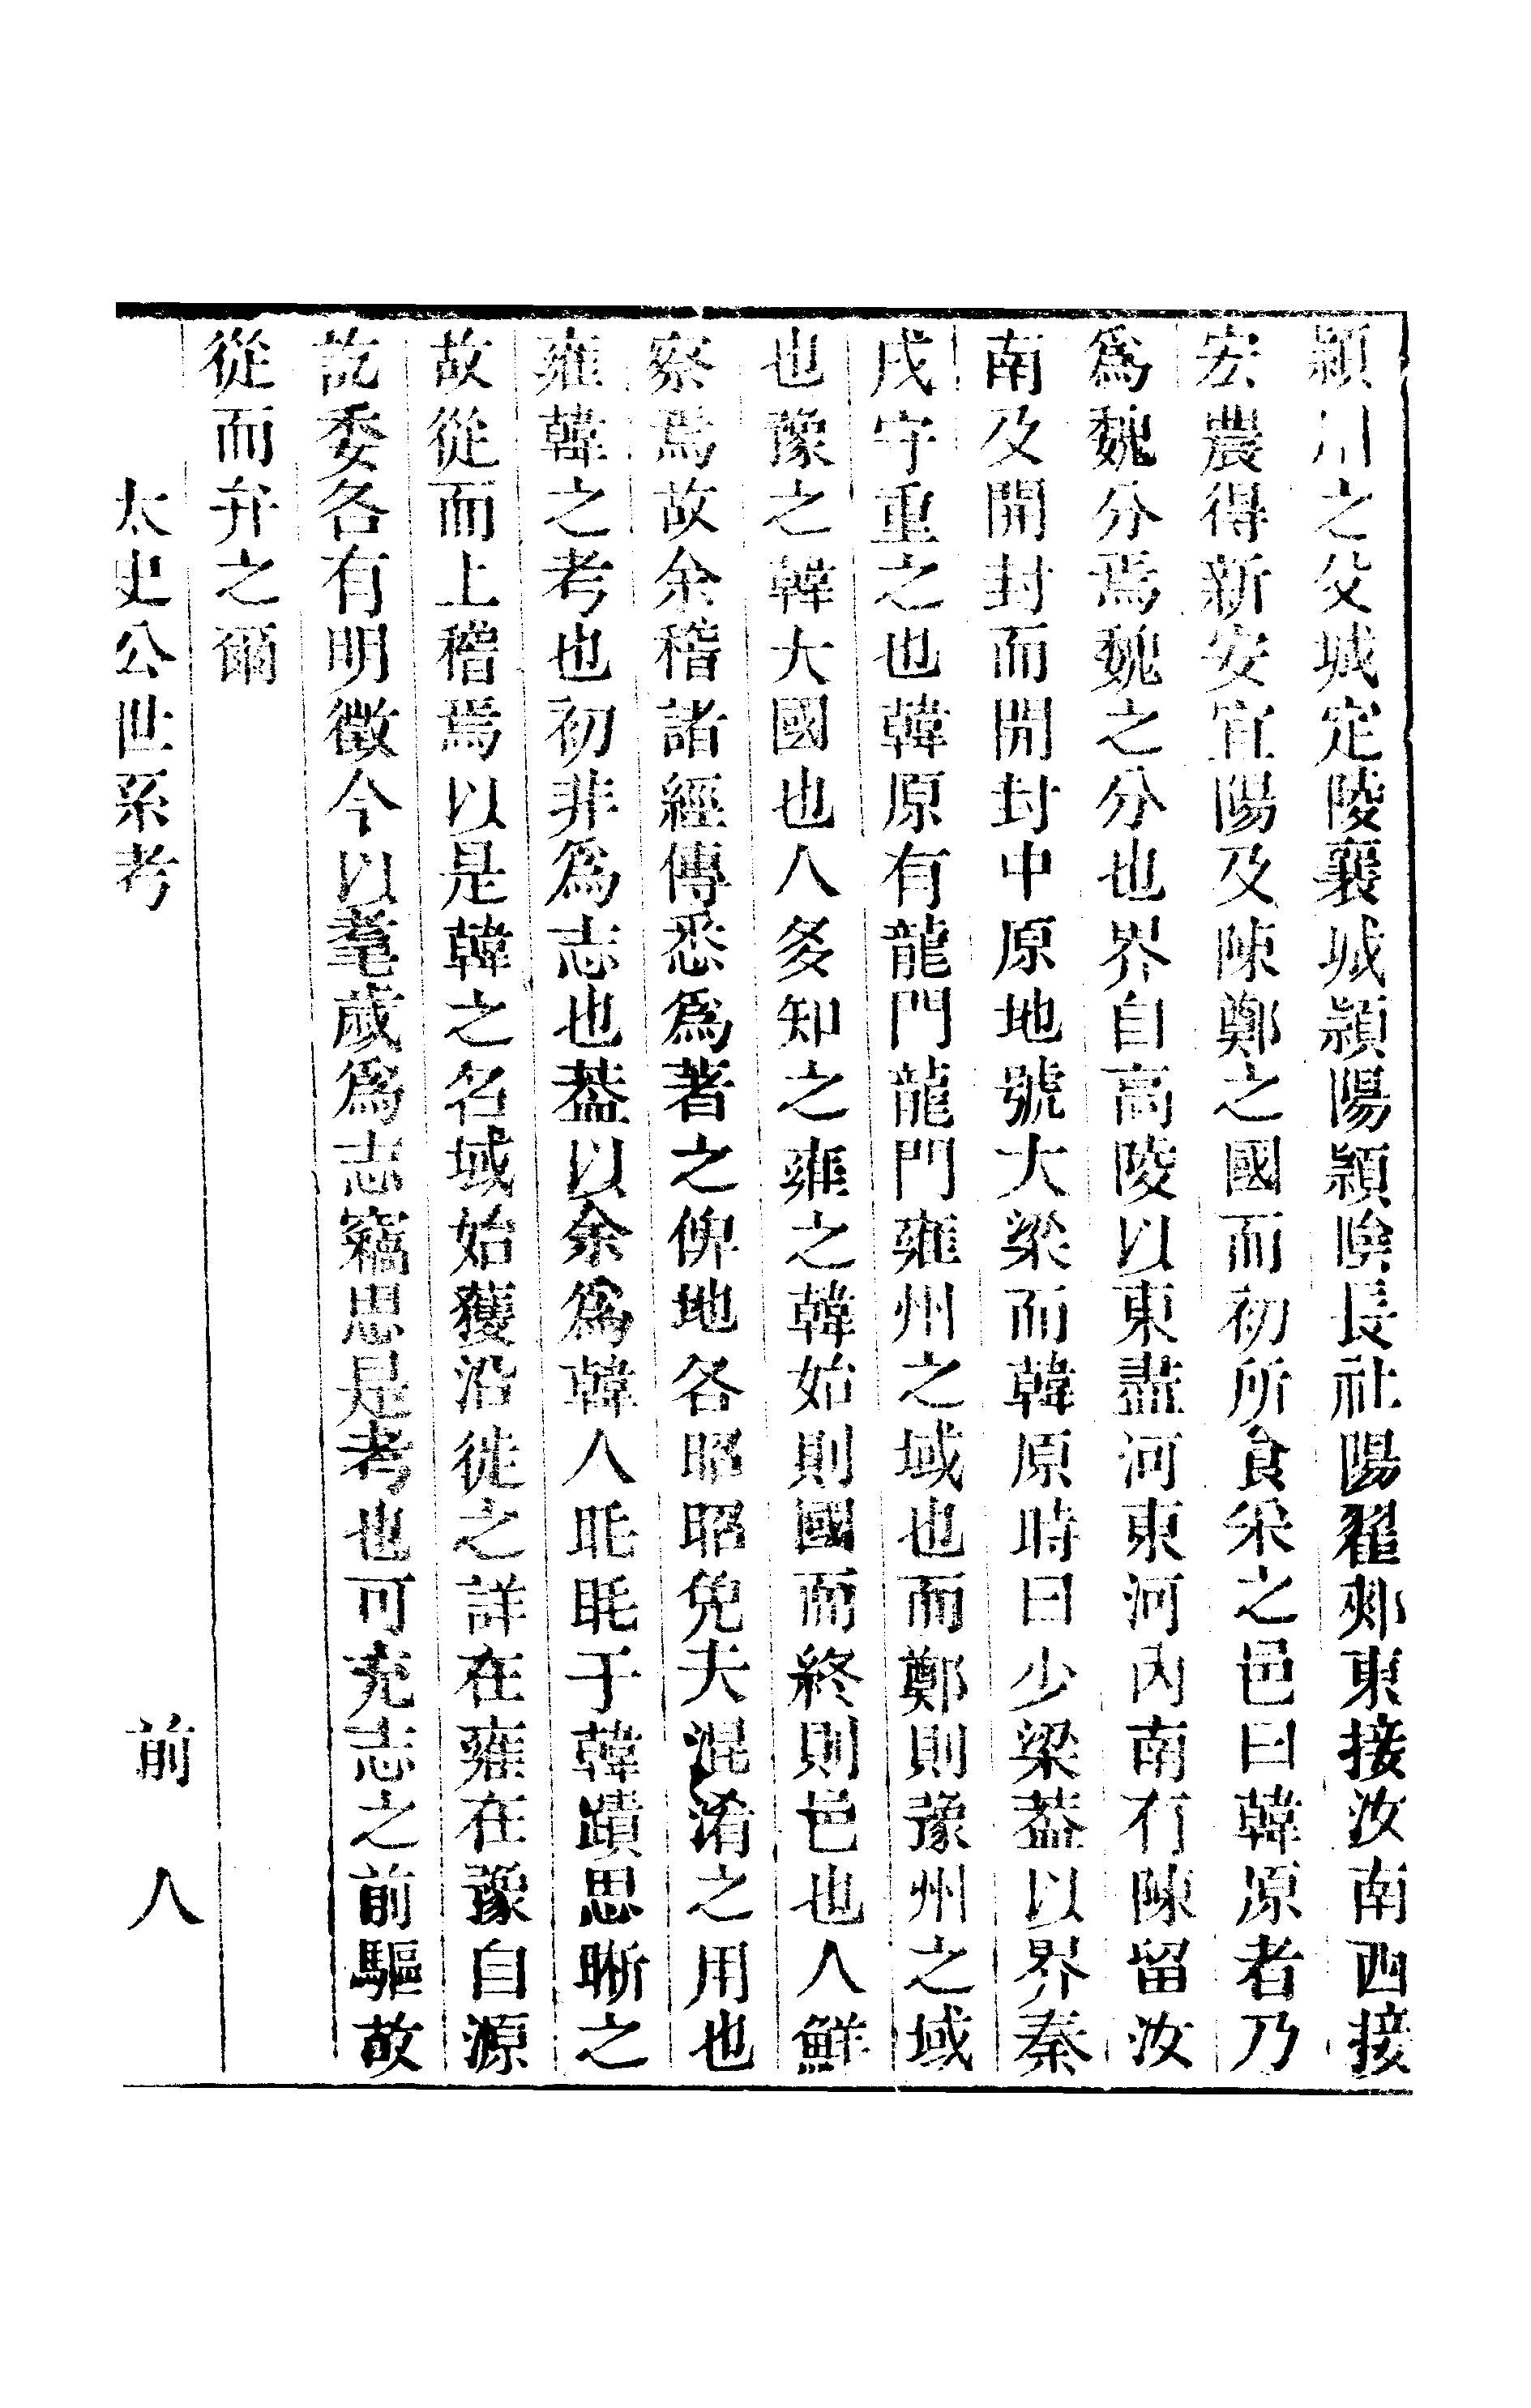 穎川之父城定陵襄城潁陽潁陰長社陽翟郟東接汝南西接
宏農得新安宜陽及陳鄭之國而初所食采之邑曰韓原者乃
爲魏分焉魏之分也界自高陵以東盡河東河內南有陳留汝
南及開封而開封中原地號大梁而韓原時曰少梁葢以界秦
戌守重之也韓原有龍門龍門雍州之域也而鄭則豫州之域
也豫之韓大國也人多知之雍之韓始則國而終則邑也人鮮
察焉故余稽諸經傳悉爲著之俾地各昭昭免夫混淆之用也
雍韓之考也初非爲志也葢以余爲韓人眊眊于韓蹟思晰之
故從而上稽焉以是韓之名域始獲沿徙之詳在雍在豫自源
訖委各有明徵今以耄歲爲志竊思是考也可充志之前驅故
從而弁之爾
太史公世系考　前　八